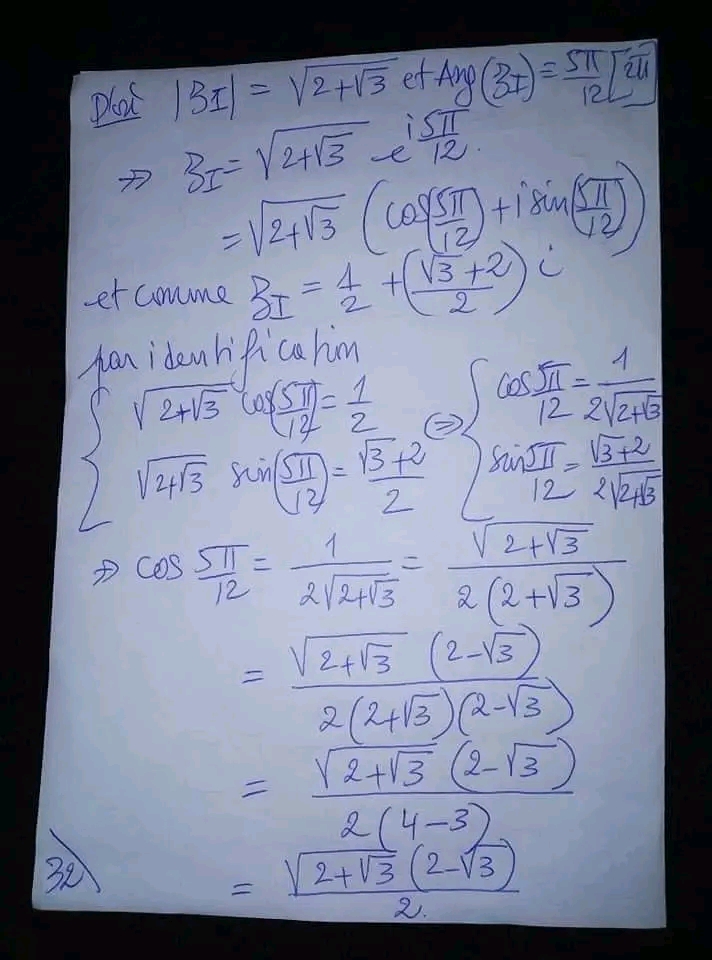 D'où |z_I| = √(2+√3) et Arg(z_I) = 5π/12 [2π]
⇒ z_I = √(2+√3) e^(i 5π/12).
= √(2+√3) (cos(5π/12) + i sin(5π/12))
et comme z_I = 1/2 + ((√3+2)/2) i
par identification
{ √(2+√3) cos(5π/12) = 1/2 ⇔ { cos 5π/12 = 1/(2√(2+√3))
{ √(2+√3) sin(5π/12) = (√3+2)/2 { sin 5π/12 = (√3+2)/(2√(2+√3))
⇒ cos 5π/12 = 1/(2√(2+√3)) = √(2+√3)/(2(2+√3))
= √(2+√3) (2-√3)/(2(2+√3)(2-√3))
= √(2+√3) (2-√3)/(2(4-3))
32) = √(2+√3) (2-√3)/2.